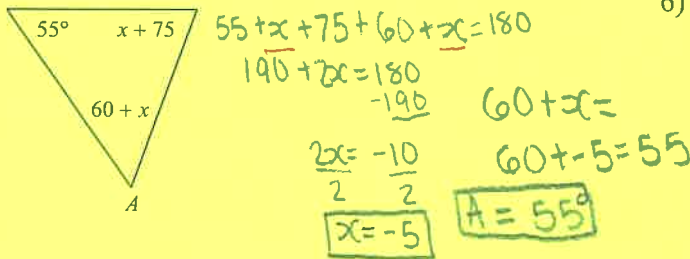 6)
55° x + 75
60 + x
A
55+x+75+60+x=180
190+2x=180
-190
2x = -10
2 2
x=-5
60+x=
60+-5=55
A = 55°